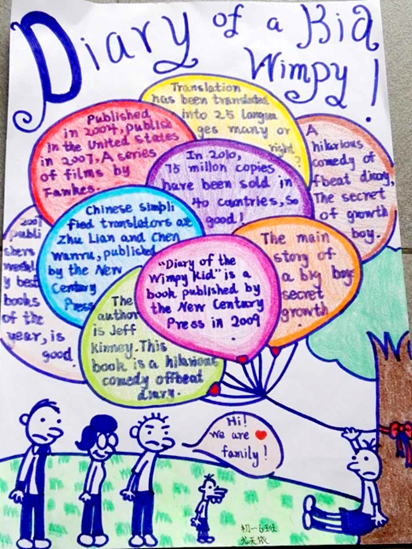 Diary of a Kid
Wimpy!
Translation
has been translated
into 25 langua
ges many or
right?
Published
in 2007, publish
in the United States
in 2007, A series
of films by
In 2010,
75 millon copies
have been sold in
40 countries, So
good!
A
hilarious
comedy of
fbeat diary,
The secret
of growth
boy.
Chinese simpli
fied translators are
Zhu Lian and Chen
Wanru, published
by the New
Century
Press
2007
publi
shers
best
books
of the
year, is
good.
"Diary of the
Wimpy Kid" is a
book published by
the New Century
Press in 2009
The main
story of
a big boy
secret
growth
The
author
is Jeff
Kinney. This
book is a hilarious
comedy offbeat
diary.
Hi!
We are ❤
family!